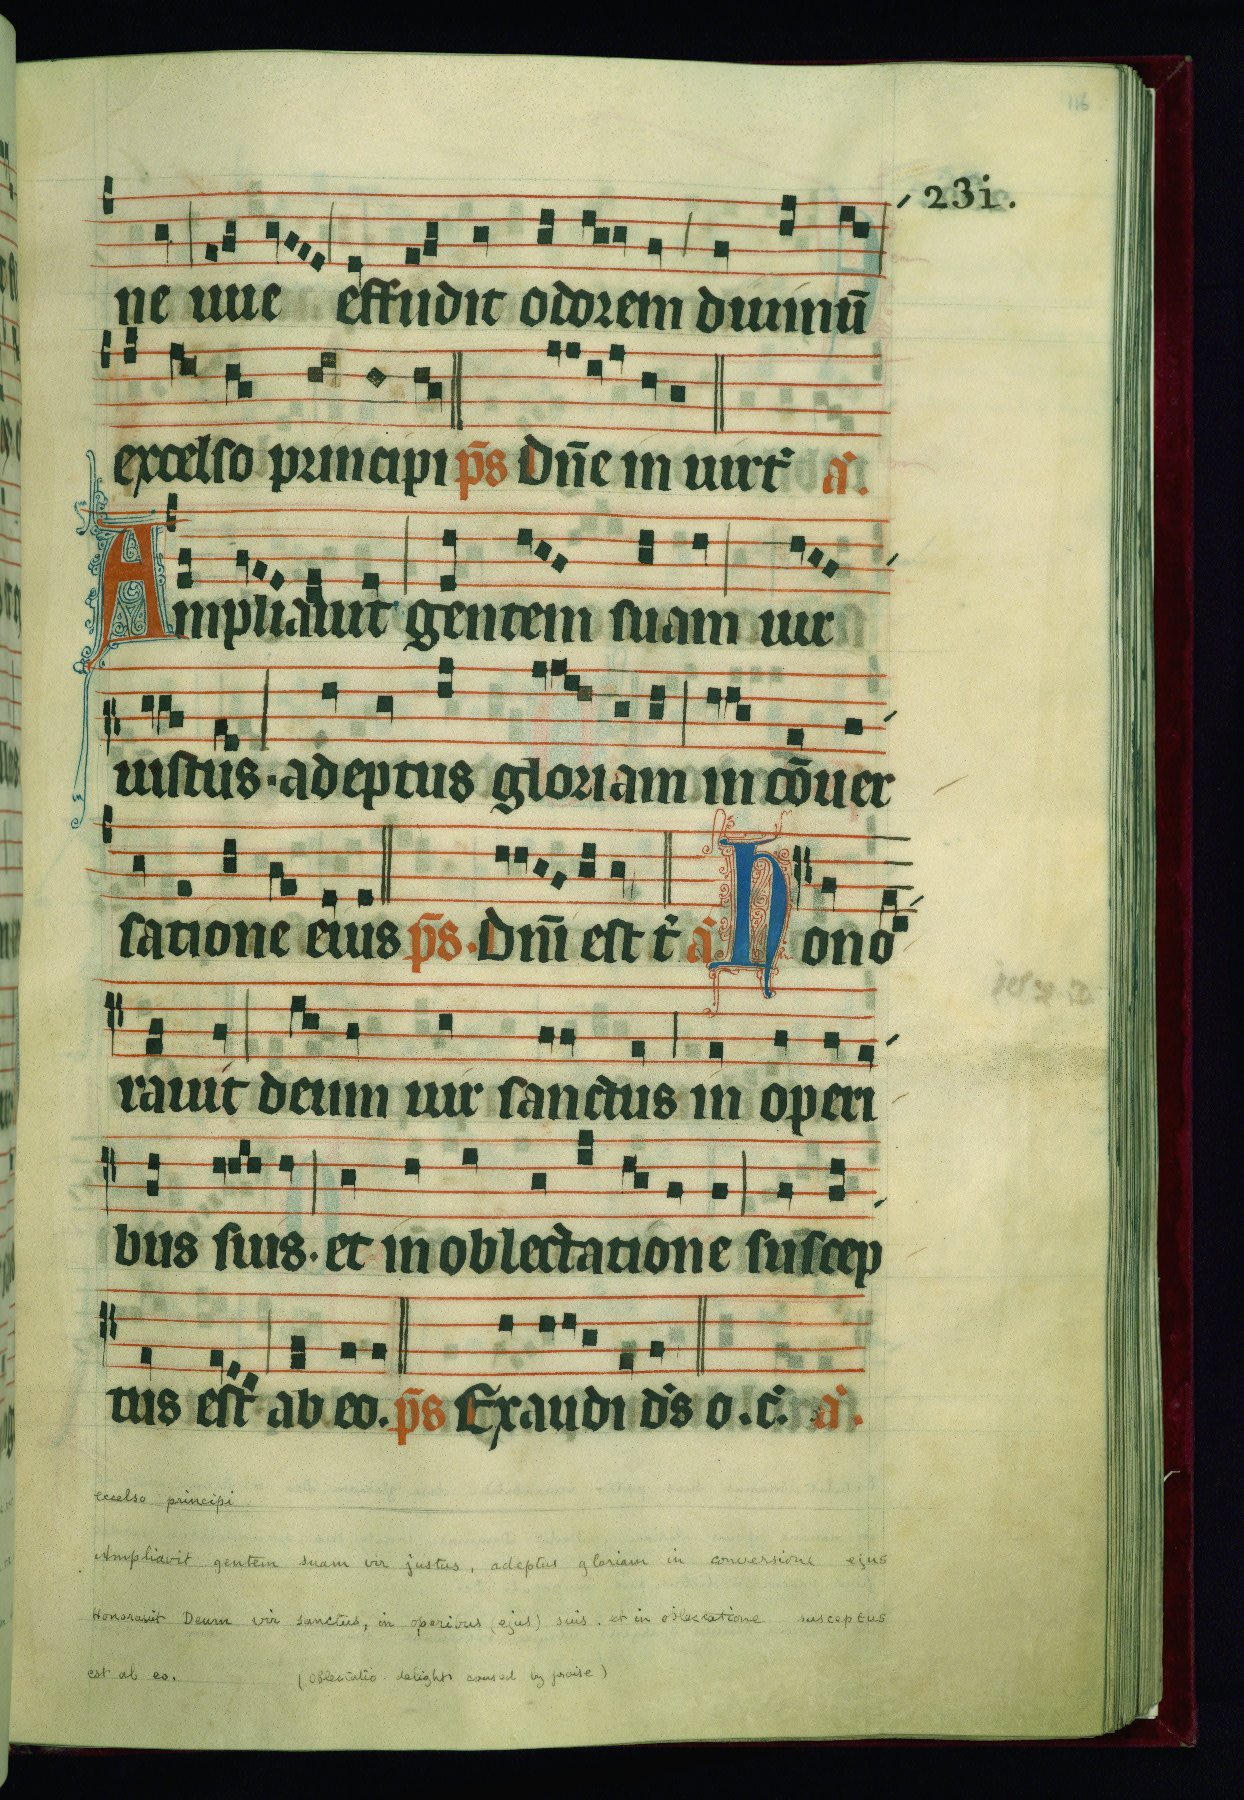 116
23i.
ne uue effudit odorem diuinū
excelso principi p̄s Dn̄e in uirt̾ a̾.
Ampliauit gentem suam uir
iustus · adeptus gloriam in cōuer
satione eius p̄s. Dn̄i est t̾ a̾ Hono
rauit deum uir sanctus in operi
bus suis. et in oblectatione suscep
tus est ab eo. p̄s Exaudi d̾s o. c̾. a̾.
eccelso principi
Ampliavit gentem suam vir justus, adeptus gloriam in conversione ejus
Honoravit Deum vir sanctus, in operibus (ejus) suis. et in oblectatione susceptus
est ab eo. (Oblectatio. delight caused by praise)